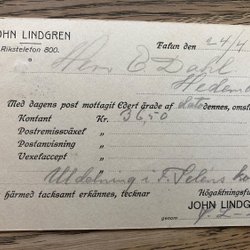 JOHN LINDGREN
Rikstelefon 800.
Falun den 24/4
Herr E Dahl
Hedem
Med dagens post mottagit Edert ärade af dato dennes, omsl
Kontant Kr. 36,50
Postremissväxel „
Postanvisning „
Vexelaccept „
Utdelning i F.
härmed tacksamt erkännes, tecknar
Högaktningsfu
JOHN LINDG
genom